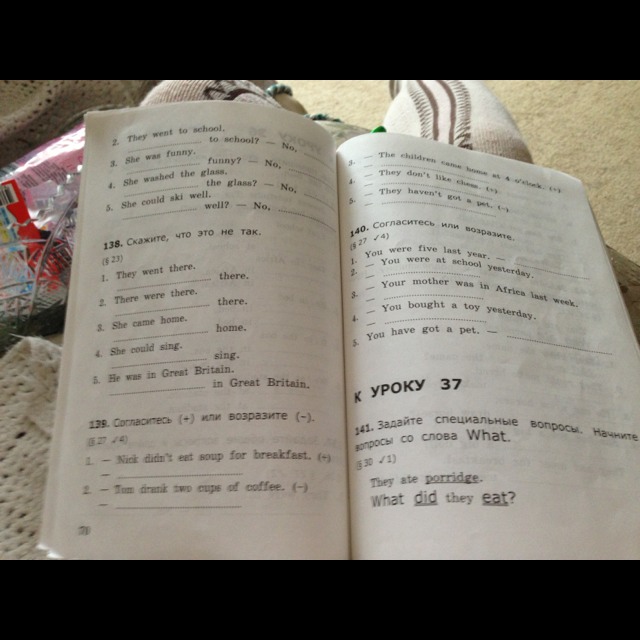 2. They went to school.
to school? — No,
3. She was funny.
funny? — No,
4. She washed the glass.
the glass? — No,
5. She could ski well.
well? — No,
138. Скажите, что это не так.
(§ 23)
1. They went there.
there.
2. There were there.
there.
3. She came home.
home.
4. She could sing.
sing.
5. He was in Great Britain.
in Great Britain.
139. Согласитесь (+) или возразите (–).
(§ 27 ✓4)
1. — Nick didn't eat soup for breakfast. (+)
—
2. — Tom drank two cups of coffee. (–)
—
3. — The children came home at 4 o'clock. (+)
—
4. — They don't like chess. (+)
—
5. — They haven't got a pet. (–)
—
140. Согласитесь или возразите.
(§ 27 ✓4)
1. You were five last year. —
2. — You were at school yesterday.
—
3. — Your mother was in Africa last week.
—
4. — You bought a toy yesterday.
—
5. You have got a pet. —
К УРОКУ 37
141. Задайте специальные вопросы. Начните
вопросы со слова What.
(§ 30 ✓1)
They ate porridge.
What did they eat?